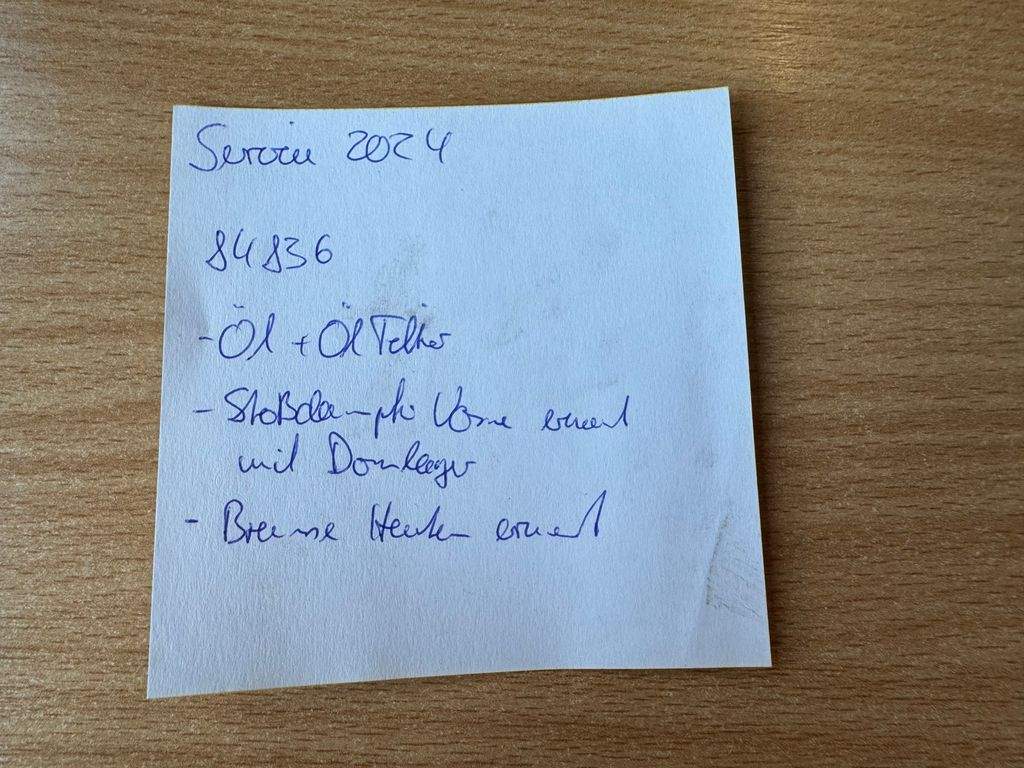 Service 2024
84836
- Öl + Öl Filter
- Stoßdämpfer Vorne erneuert
mit Domlager
- Bremse Hinten erneuert